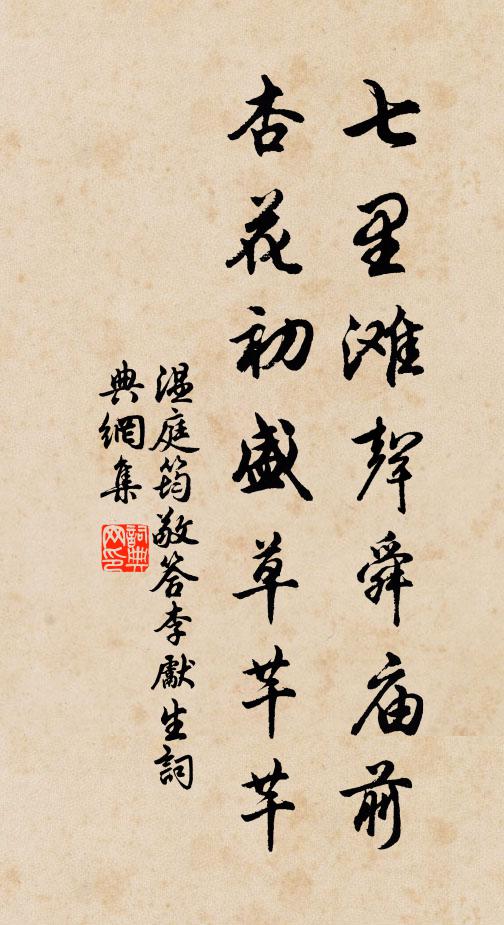 七里滩聲舜庙前
杏花初盛草芊芊
温庭筠敬答李獻生詞
典網集
詞典
网印